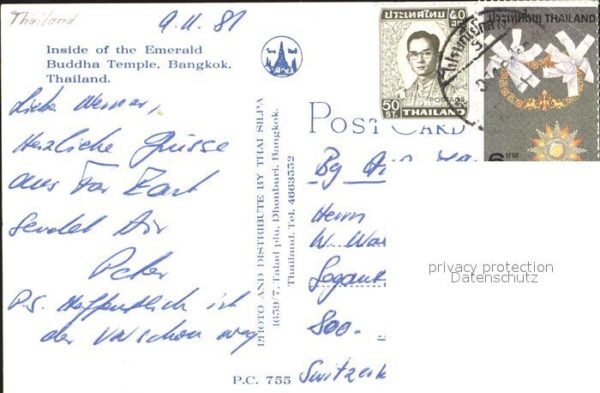 Thailand
9.11.81
Inside of the Emerald
Buddha Temple, Bangkok,
Thailand.
Lieber Werner,
Herzliche Grüsse
aus Far East
sendet Dir
Peter
P.S. Hoffentlich ist
der Vorschau weg
P.C. 755
PHOTO AND DISTRIBUTE BY THAI SILPA
1659/7, Talad plu, Dhonburi, Bangkok.
Thailand. Tel. 4663552
ประเทศไทย
50
ST.
THAILAND
ประเทศไทย THAILAND
6 บาท
POST CARD
By
Herrn
W.
800
Switzerl
privacy protection
Datenschutz